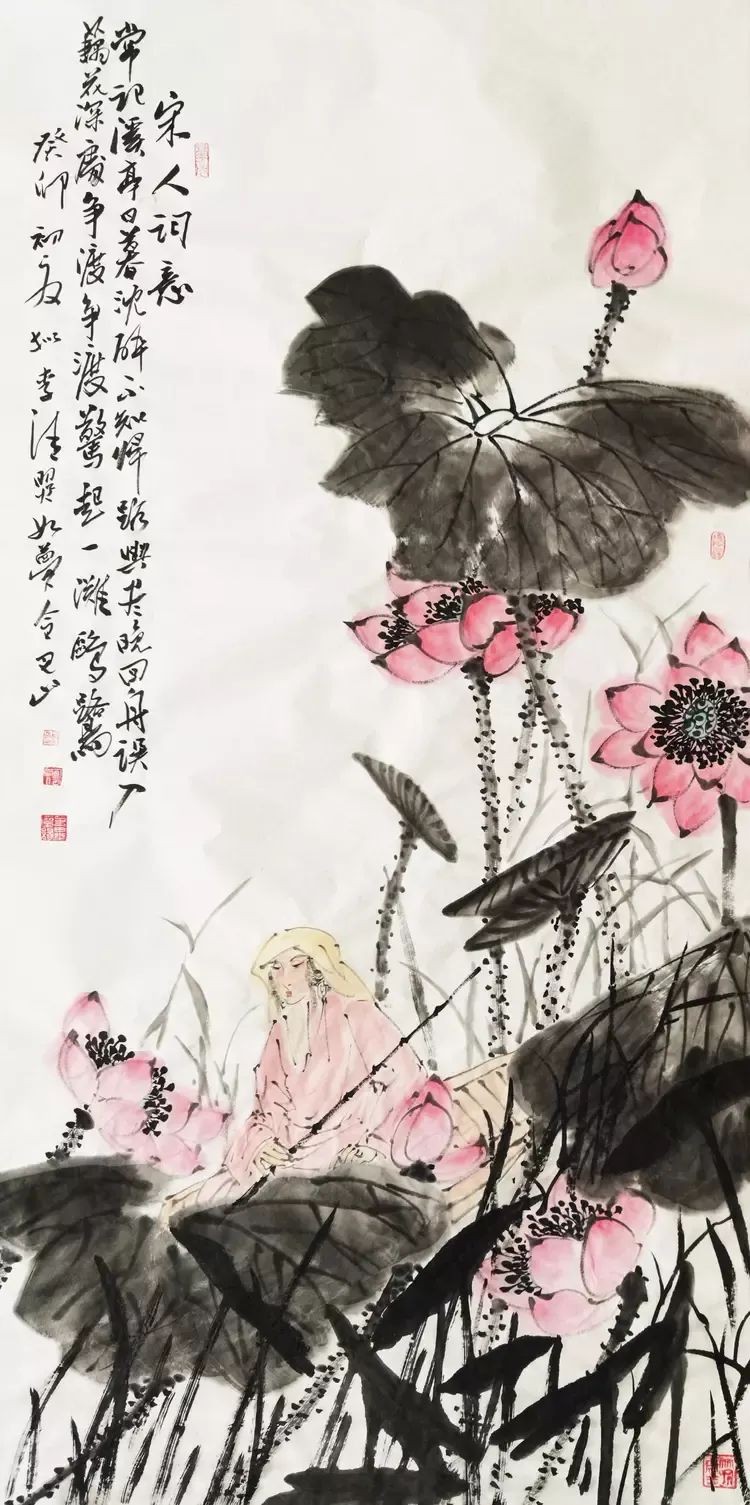 宋人词意
常记溪亭日暮沈醉不知歸路興尽晚回舟误入
藕花深處争渡争渡驚起一滩鸥鹭
癸卯初夏 李清照如梦令 山